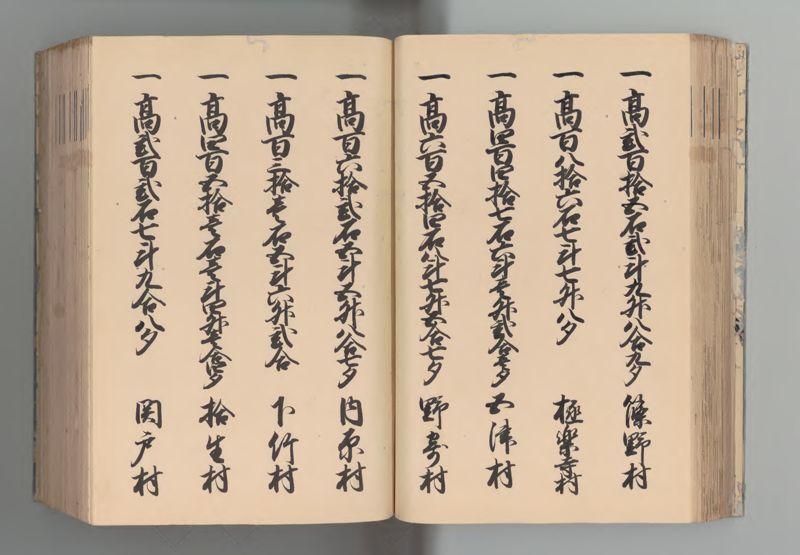 一 高弐百拾五石弐斗九升八合九夕 篠野村
一 高百八拾六石七斗七升八夕 極楽寺村
一 高四百四拾七石六斗壱升弐合壱夕 五津村
一 高六百五拾四石八斗七升五合七夕 野寄村
一 高百六拾弐石五斗五升八合七夕 内原村
一 高百三拾壱石五斗六升弐合 下竹村
一 高四百五拾壱石壱斗四升壱合四夕 拾生村
一 高弐百弐石七斗九合八夕 関戸村